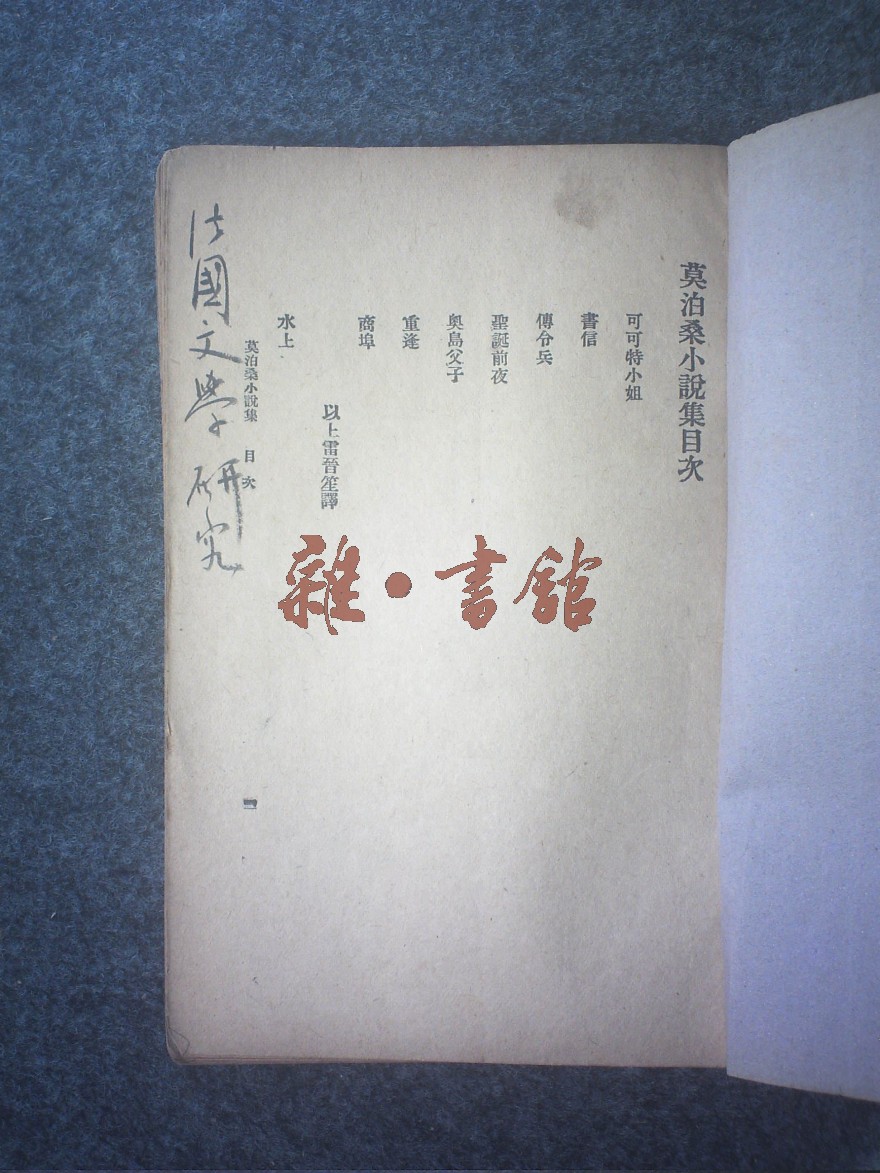 莫泊桑小說集目次
可可特小姐
書信
傳令兵
聖誕前夜
奧島父子
重逢
商埠
以上雷晉笙譯
水上
莫泊桑小說集 目次
一
法國文學研究
雜·書館